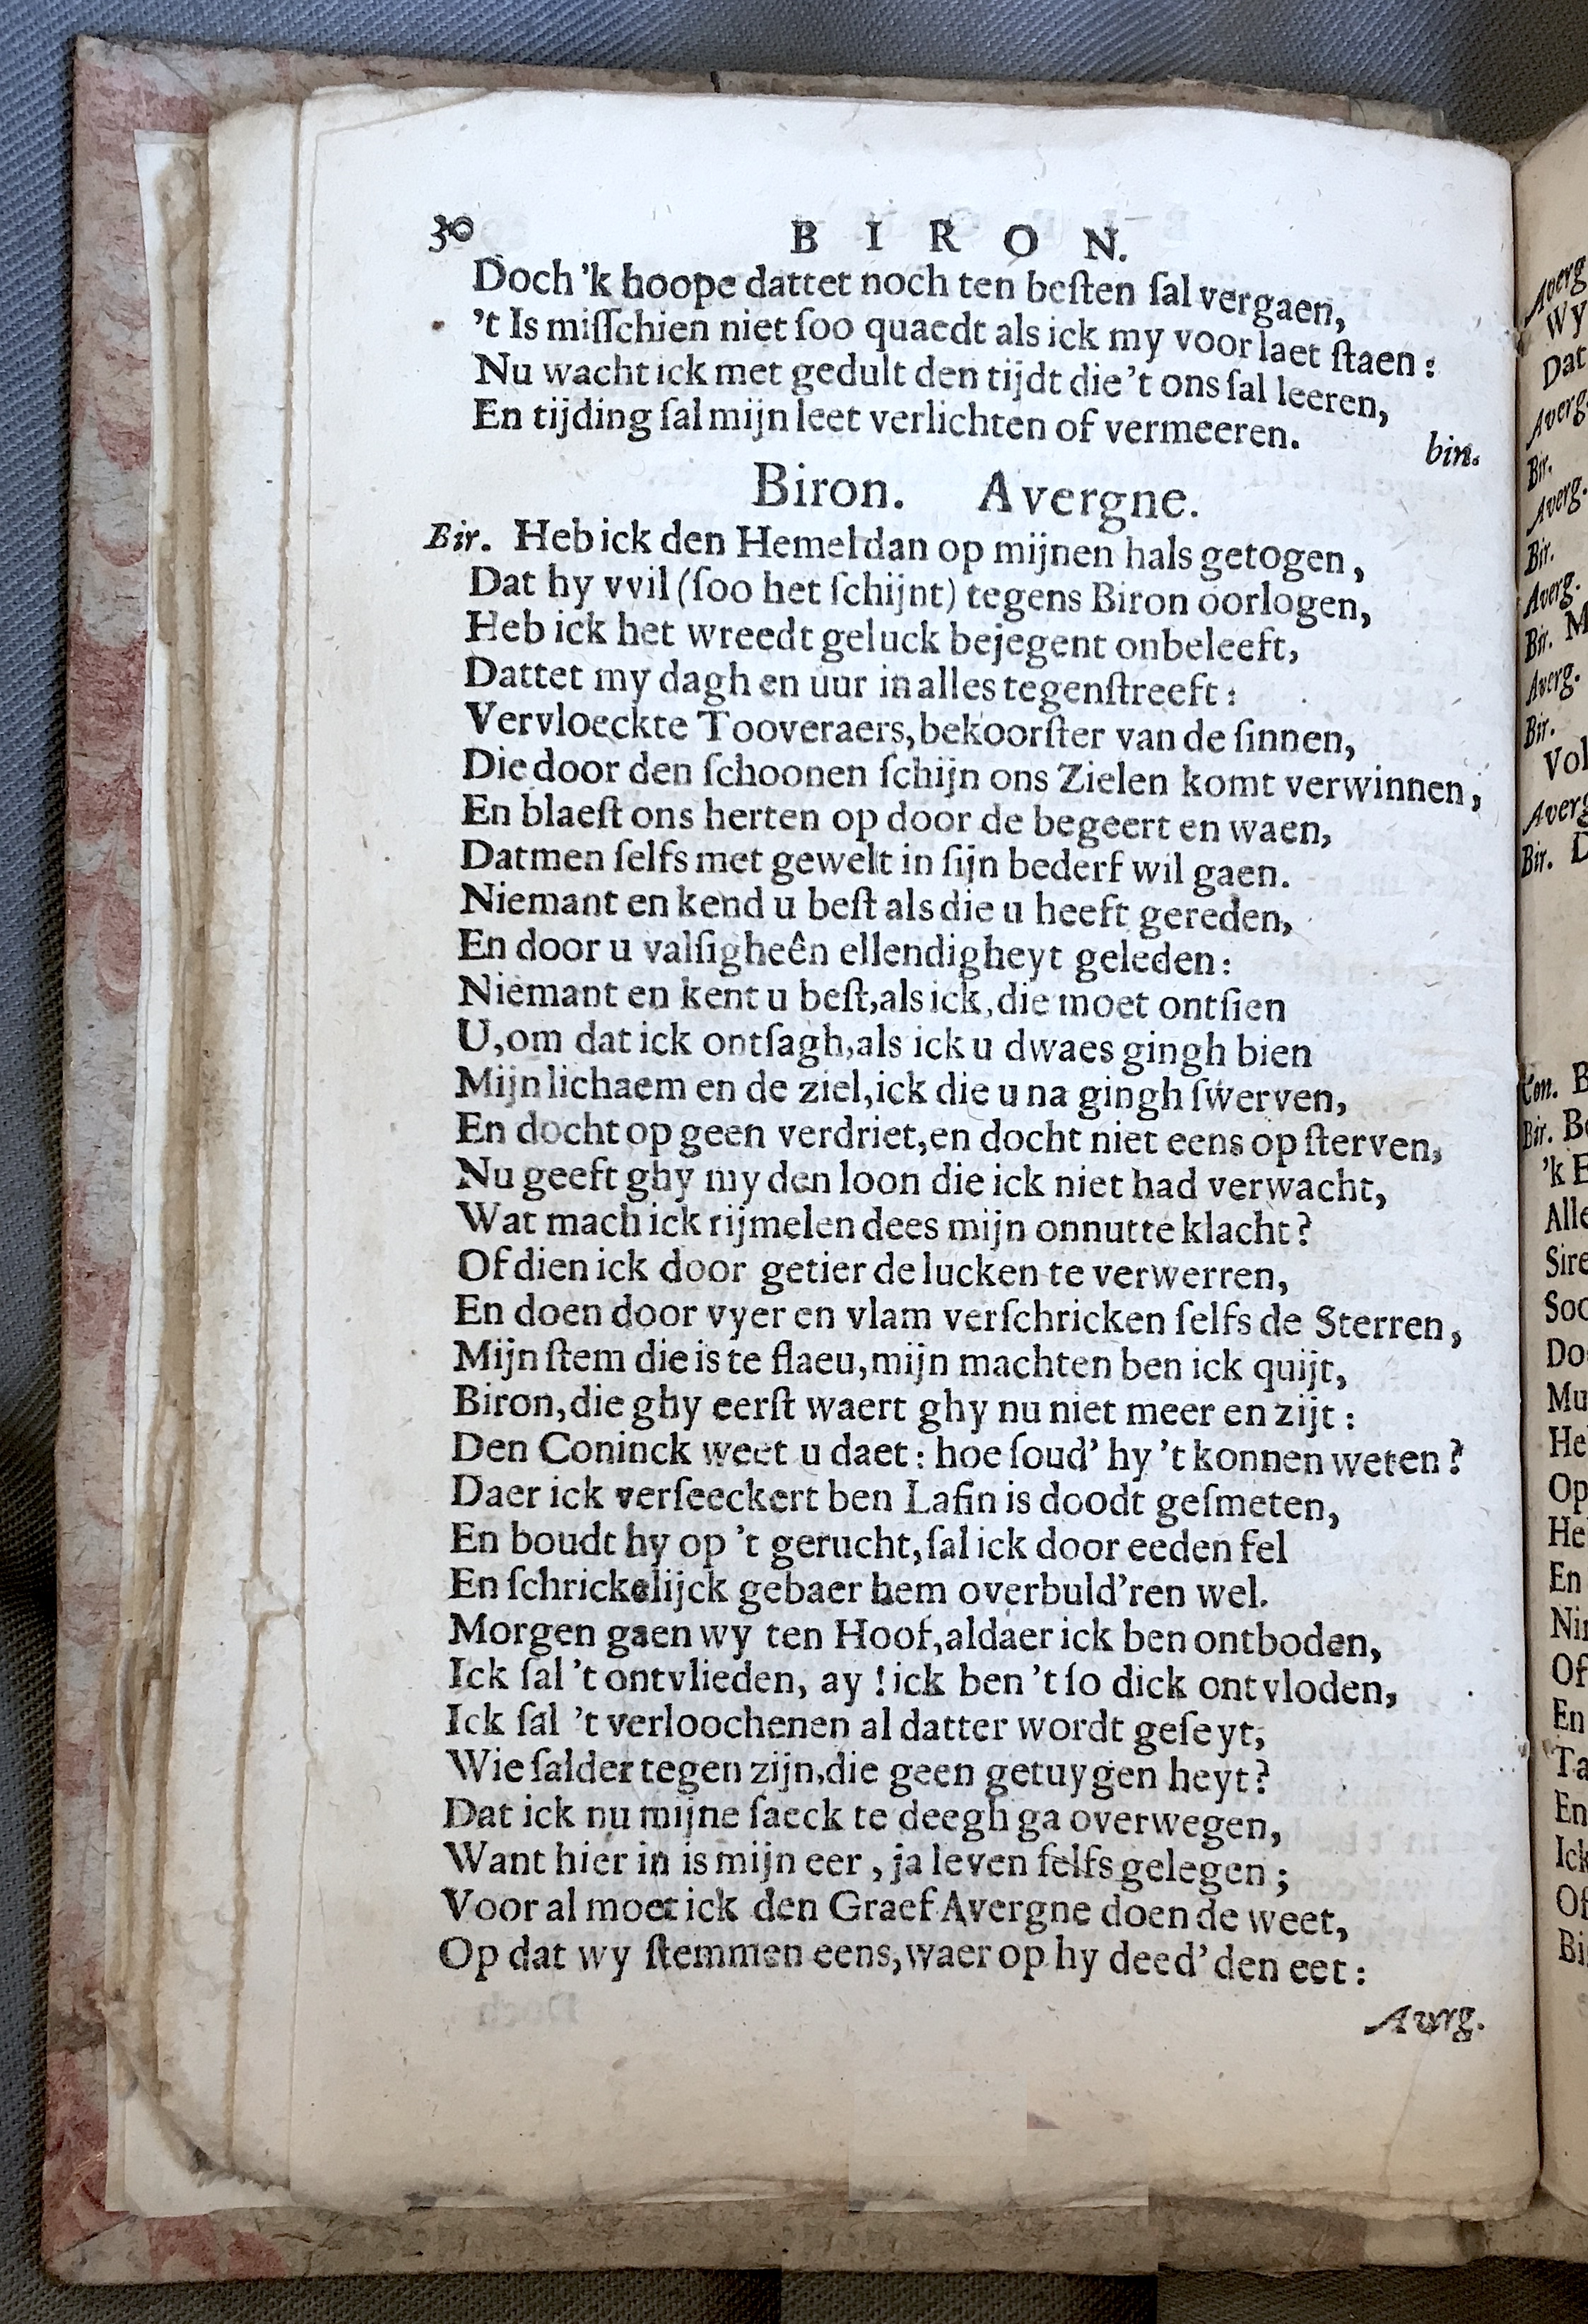 30 BIRON.
Doch 'k hoope dattet noch ten besten sal vergaen,
't Is misschien niet soo quaedt als ick my voor laet staen:
Nu wacht ick met gedult den tijdt die 't ons sal leeren,
En tijding sal mijn leet verlichten of vermeeren.
bin.
Biron. Avergne.
Bir. Heb ick den Hemel dan op mijnen hals getogen,
Dat hy vvil (soo het schijnt) tegens Biron oorlogen,
Heb ick het wreedt geluck bejegent onbeleeft,
Dattet my dagh en uur in alles tegenstreeft:
Vervloeckte Tooveraers, bekoorster van de sinnen,
Die door den schoonen schijn ons Zielen komt verwinnen,
En blaest ons herten op door de begeert en waen,
Datmen selfs met gewelt in sijn bederf wil gaen.
Niemant en kend u best als die u heeft gereden,
En door u valsigheên ellendigheyt geleden:
Niemant en kent u best, als ick, die moet ontsien
U, om dat ick ontsagh, als ick u dwaes gingh bien
Mijn lichaem en de ziel, ick die u na gingh swerven,
En docht op geen verdriet, en docht niet eens op sterven,
Nu geeft ghy my den loon die ick niet had verwacht,
Wat mach ick rijmelen dees mijn onnutte klacht?
Of dien ick door getier de lucken te verwerren,
En doen door vyer en vlam verschricken selfs de Sterren,
Mijn stem die is te flaeu, mijn machten ben ick quijt,
Biron, die ghy eerst waert ghy nu niet meer en zijt:
Den Coninck weet u daet: hoe soud' hy 't konnen weten?
Daer ick verseeckert ben Lafin is doodt gesmeten,
En boudt hy op 't gerucht, sal ick door eeden fel
En schrickelijck gebaer hem overbuld'ren wel.
Morgen gaen wy ten Hoof, aldaer ick ben ontboden,
Ick sal 't ontvlieden, ay ! ick ben 't so dick ontvloden,
Ick sal 't verloochenen al datter wordt geseyt,
Wie salder tegen zijn, die geen getuygen heyt?
Dat ick nu mijne saeck te deegh ga overwegen,
Want hier in is mijn eer, ja leven selfs gelegen;
Voor al moet ick den Graef Avergne doen de weet,
Op dat wy stemmen eens, waer op hy deed' den eet:
Averg.
Averg
Wy
Dat
Averg.
Bir.
Averg.
Bir.
Averg.
Bir. M
Averg.
Bir.
Vol
Averg
Bir. D
Con. B
Bir. Be
'k E
Alle
Sire
Soo
Do
Mu
He
Op
He
En
Nin
Of
En
Ta
En
Ick
Of
Bi